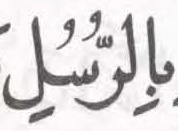 بِالرُّسُلِ